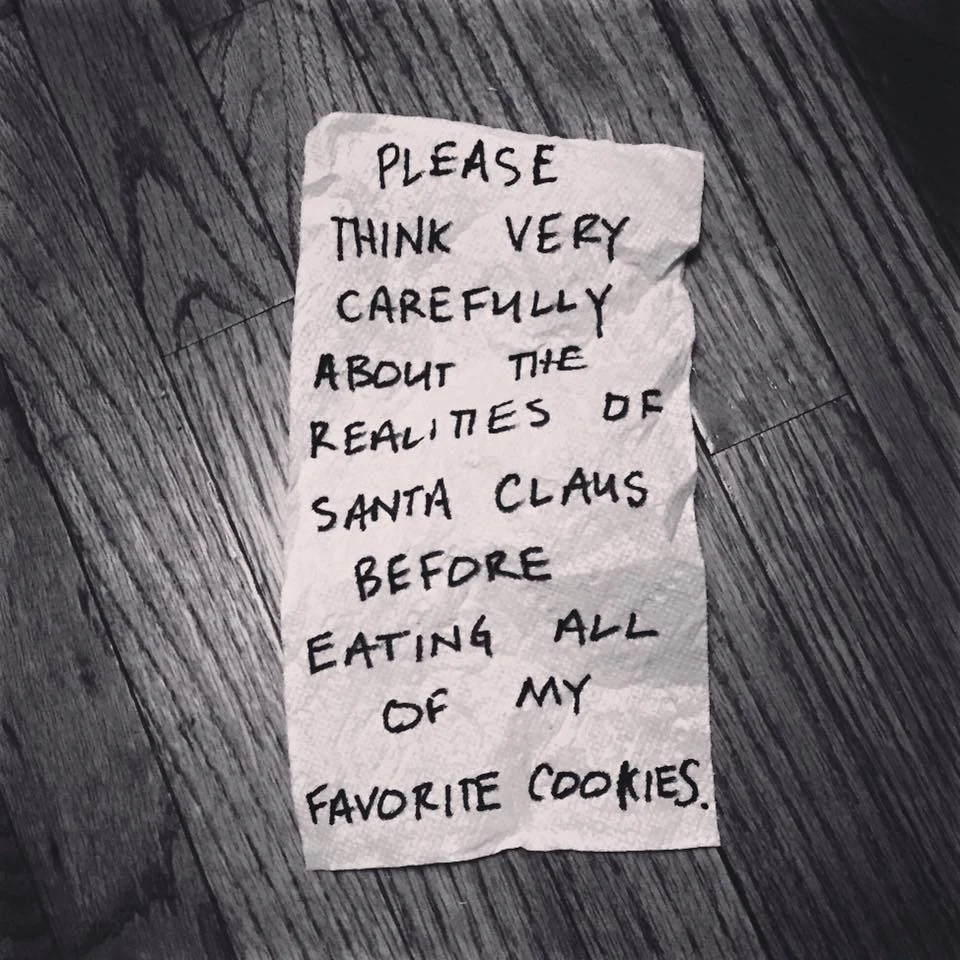 PLEASE
THINK VERY
CAREFULLY
ABOUT THE
REALITIES OF
SANTA CLAUS
BEFORE
EATING ALL
OF MY
FAVORITE COOKIES.